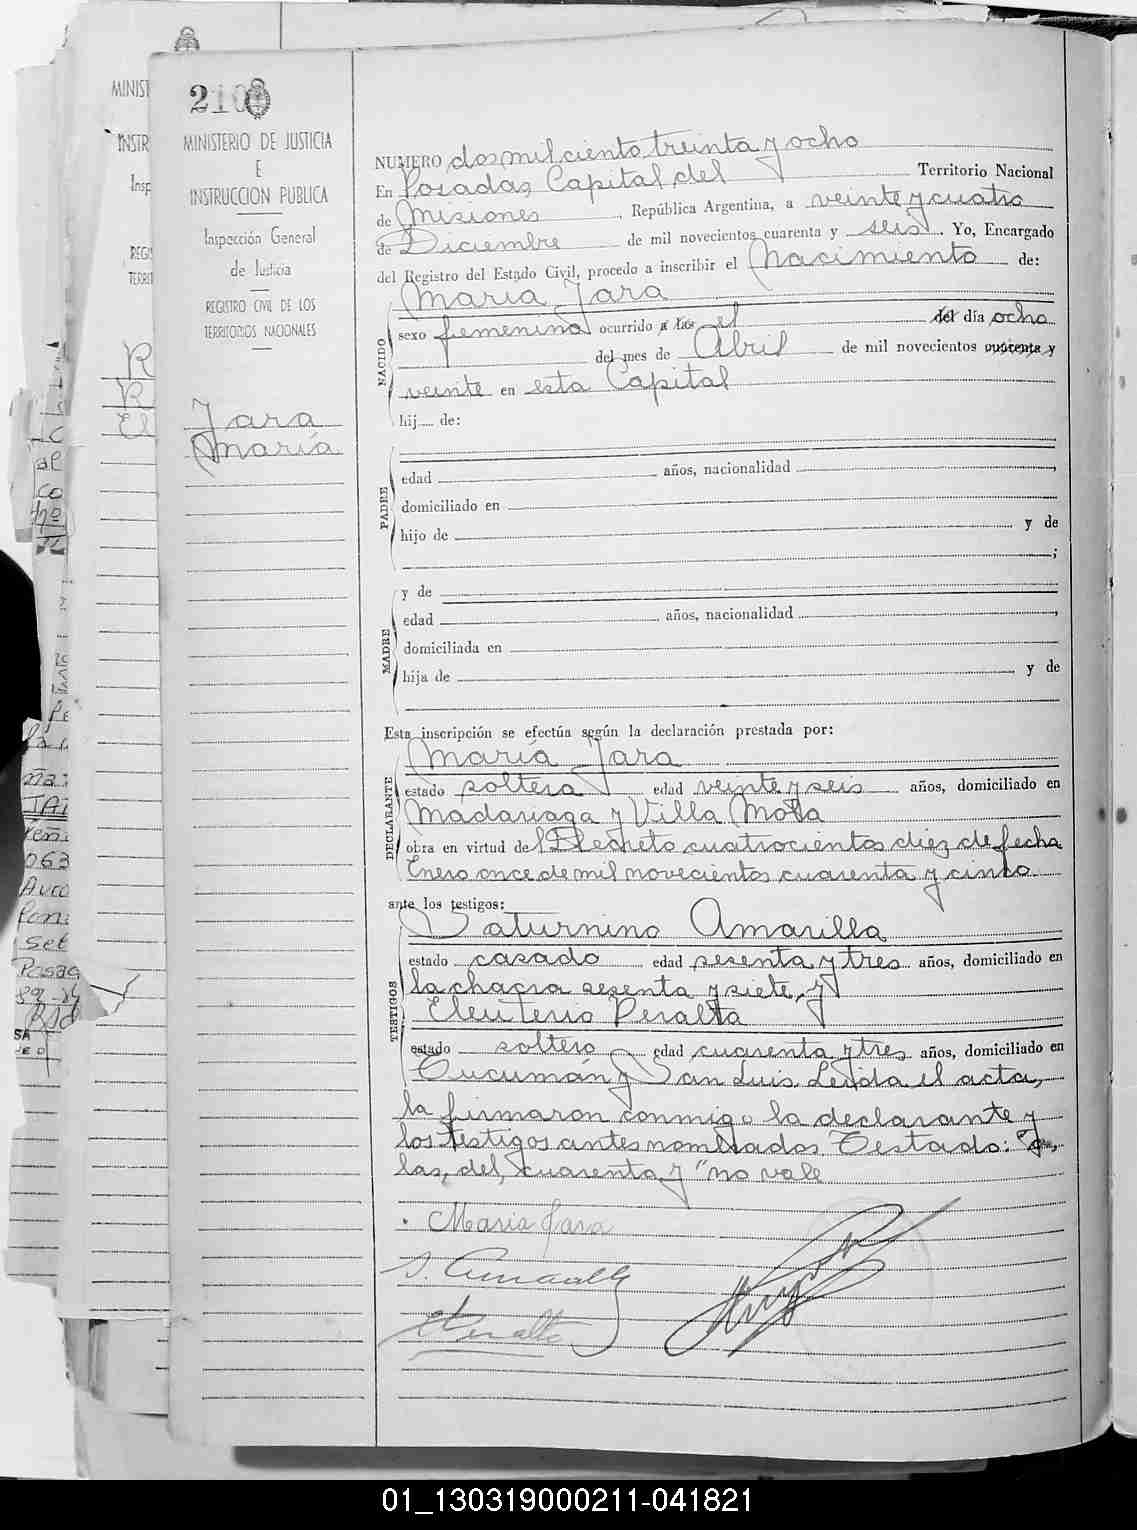 210
MINISTERIO DE JUSTICIA
E
INSTRUCCION PUBLICA
Inspección General
de Justicia
REGISTRO CIVIL DE LOS
TERRITORIOS NACIONALES
Jara
María
NUMERO dos mil ciento treinta y ocho
En Posadas, Capital del Territorio Nacional
de Misiones, República Argentina, a veinte y cuatro
de Diciembre de mil novecientos cuarenta y seis. Yo, Encargado
del Registro del Estado Civil, procedo a inscribir el Nacimiento de:
María Jara
NACIDO
sexo femenino ocurrido a las el del día ocho
del mes de Abril de mil novecientos cuarenta y
veinte en esta Capital
hij de:
PADRE
edad años, nacionalidad ,
domiciliado en
hijo de y de
;
MADRE
y de
edad años, nacionalidad ,
domiciliada en
hija de y de
Esta inscripción se efectúa según la declaración prestada por:
DECLARANTE
María Jara
estado soltera edad veinte y seis años, domiciliado en
Madariaga y Villa Mota
obra en virtud del Decreto cuatrocientos diez de fecha
Enero once de mil novecientos cuarenta y cinco
ante los testigos:
TESTIGOS
Saturnino Amarilla
estado casado edad sesenta y tres años, domiciliado en
la chacra sesenta y siete, y
Eleuterio Peralta
estado soltero edad cuarenta y tres años, domiciliado en
Tucumán y San Luis. Leída el acta,
la firmaron conmigo la declarante y
los testigos antes nombrados Testado: "a,
las, del, cuarenta y" no vale
María Jara
S. Amarilla
E Peralta
01_130319000211-041821